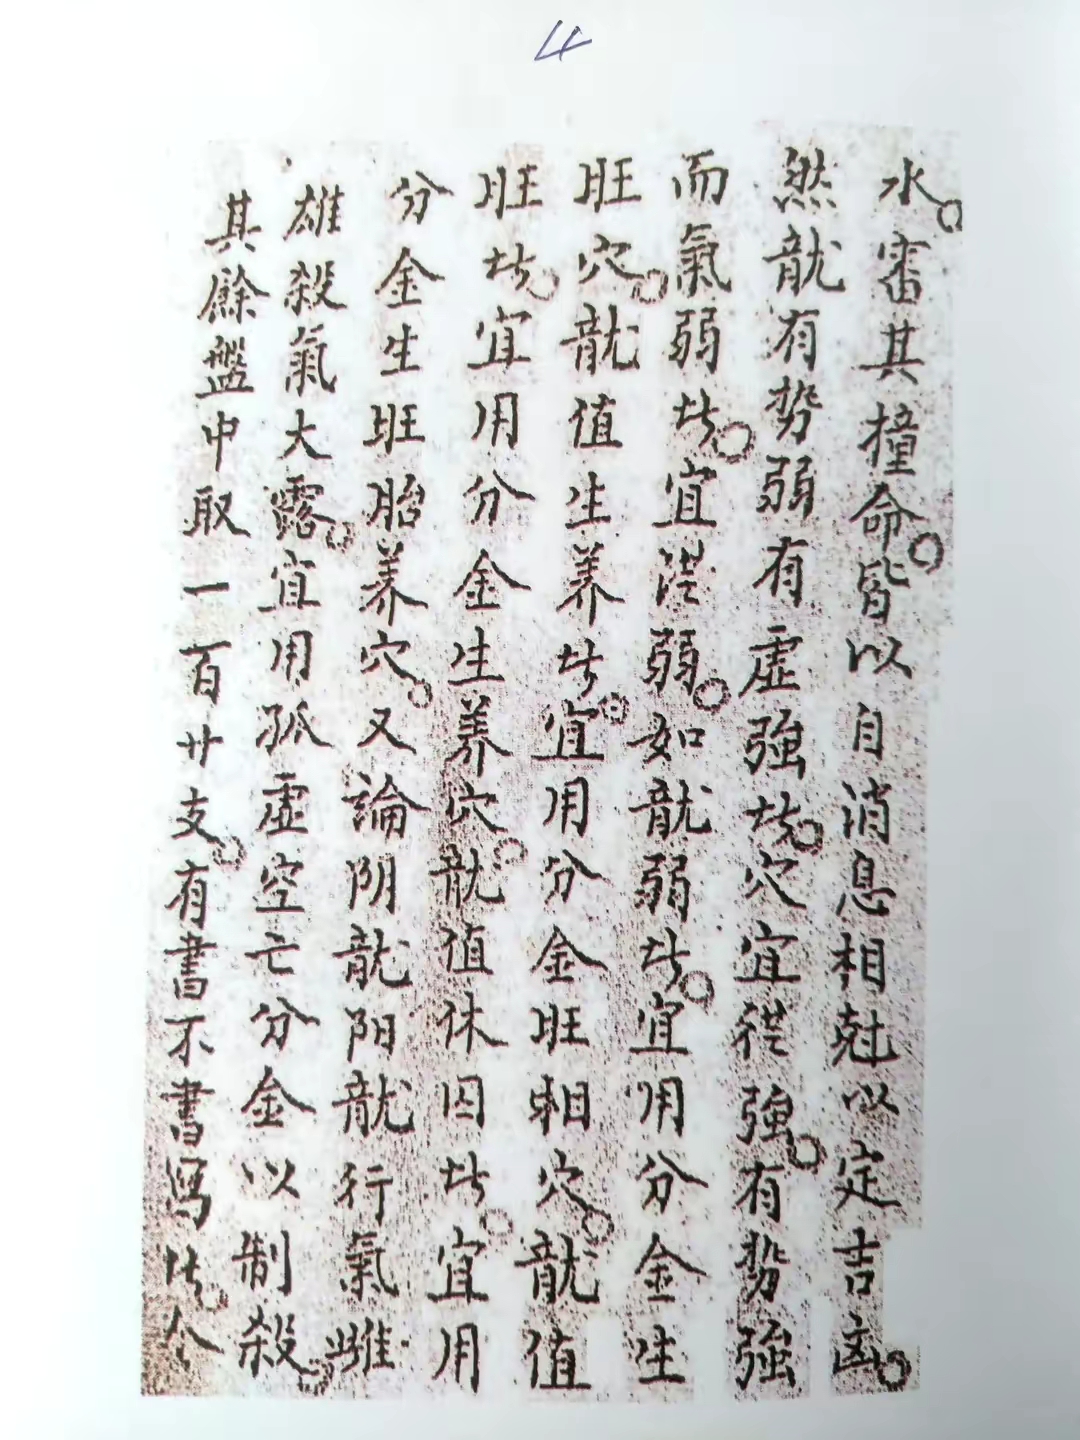 4
水審其撞命皆以自消息相尅以定吉凶
然龍有势弱有虛強者穴宜從強有势強
而氣弱者宜從弱如龍弱者宜用分金生
旺穴龍值生养者宜用分金旺相穴龍值
旺者宜用分金生养穴龍值休囚者宜用
分金生旺胎养穴又論阴龍阳龍行氣雌
雄殺氣大露宜用孤虛空亡分金以制殺
其餘盤中取一百廿支有書不書写者今